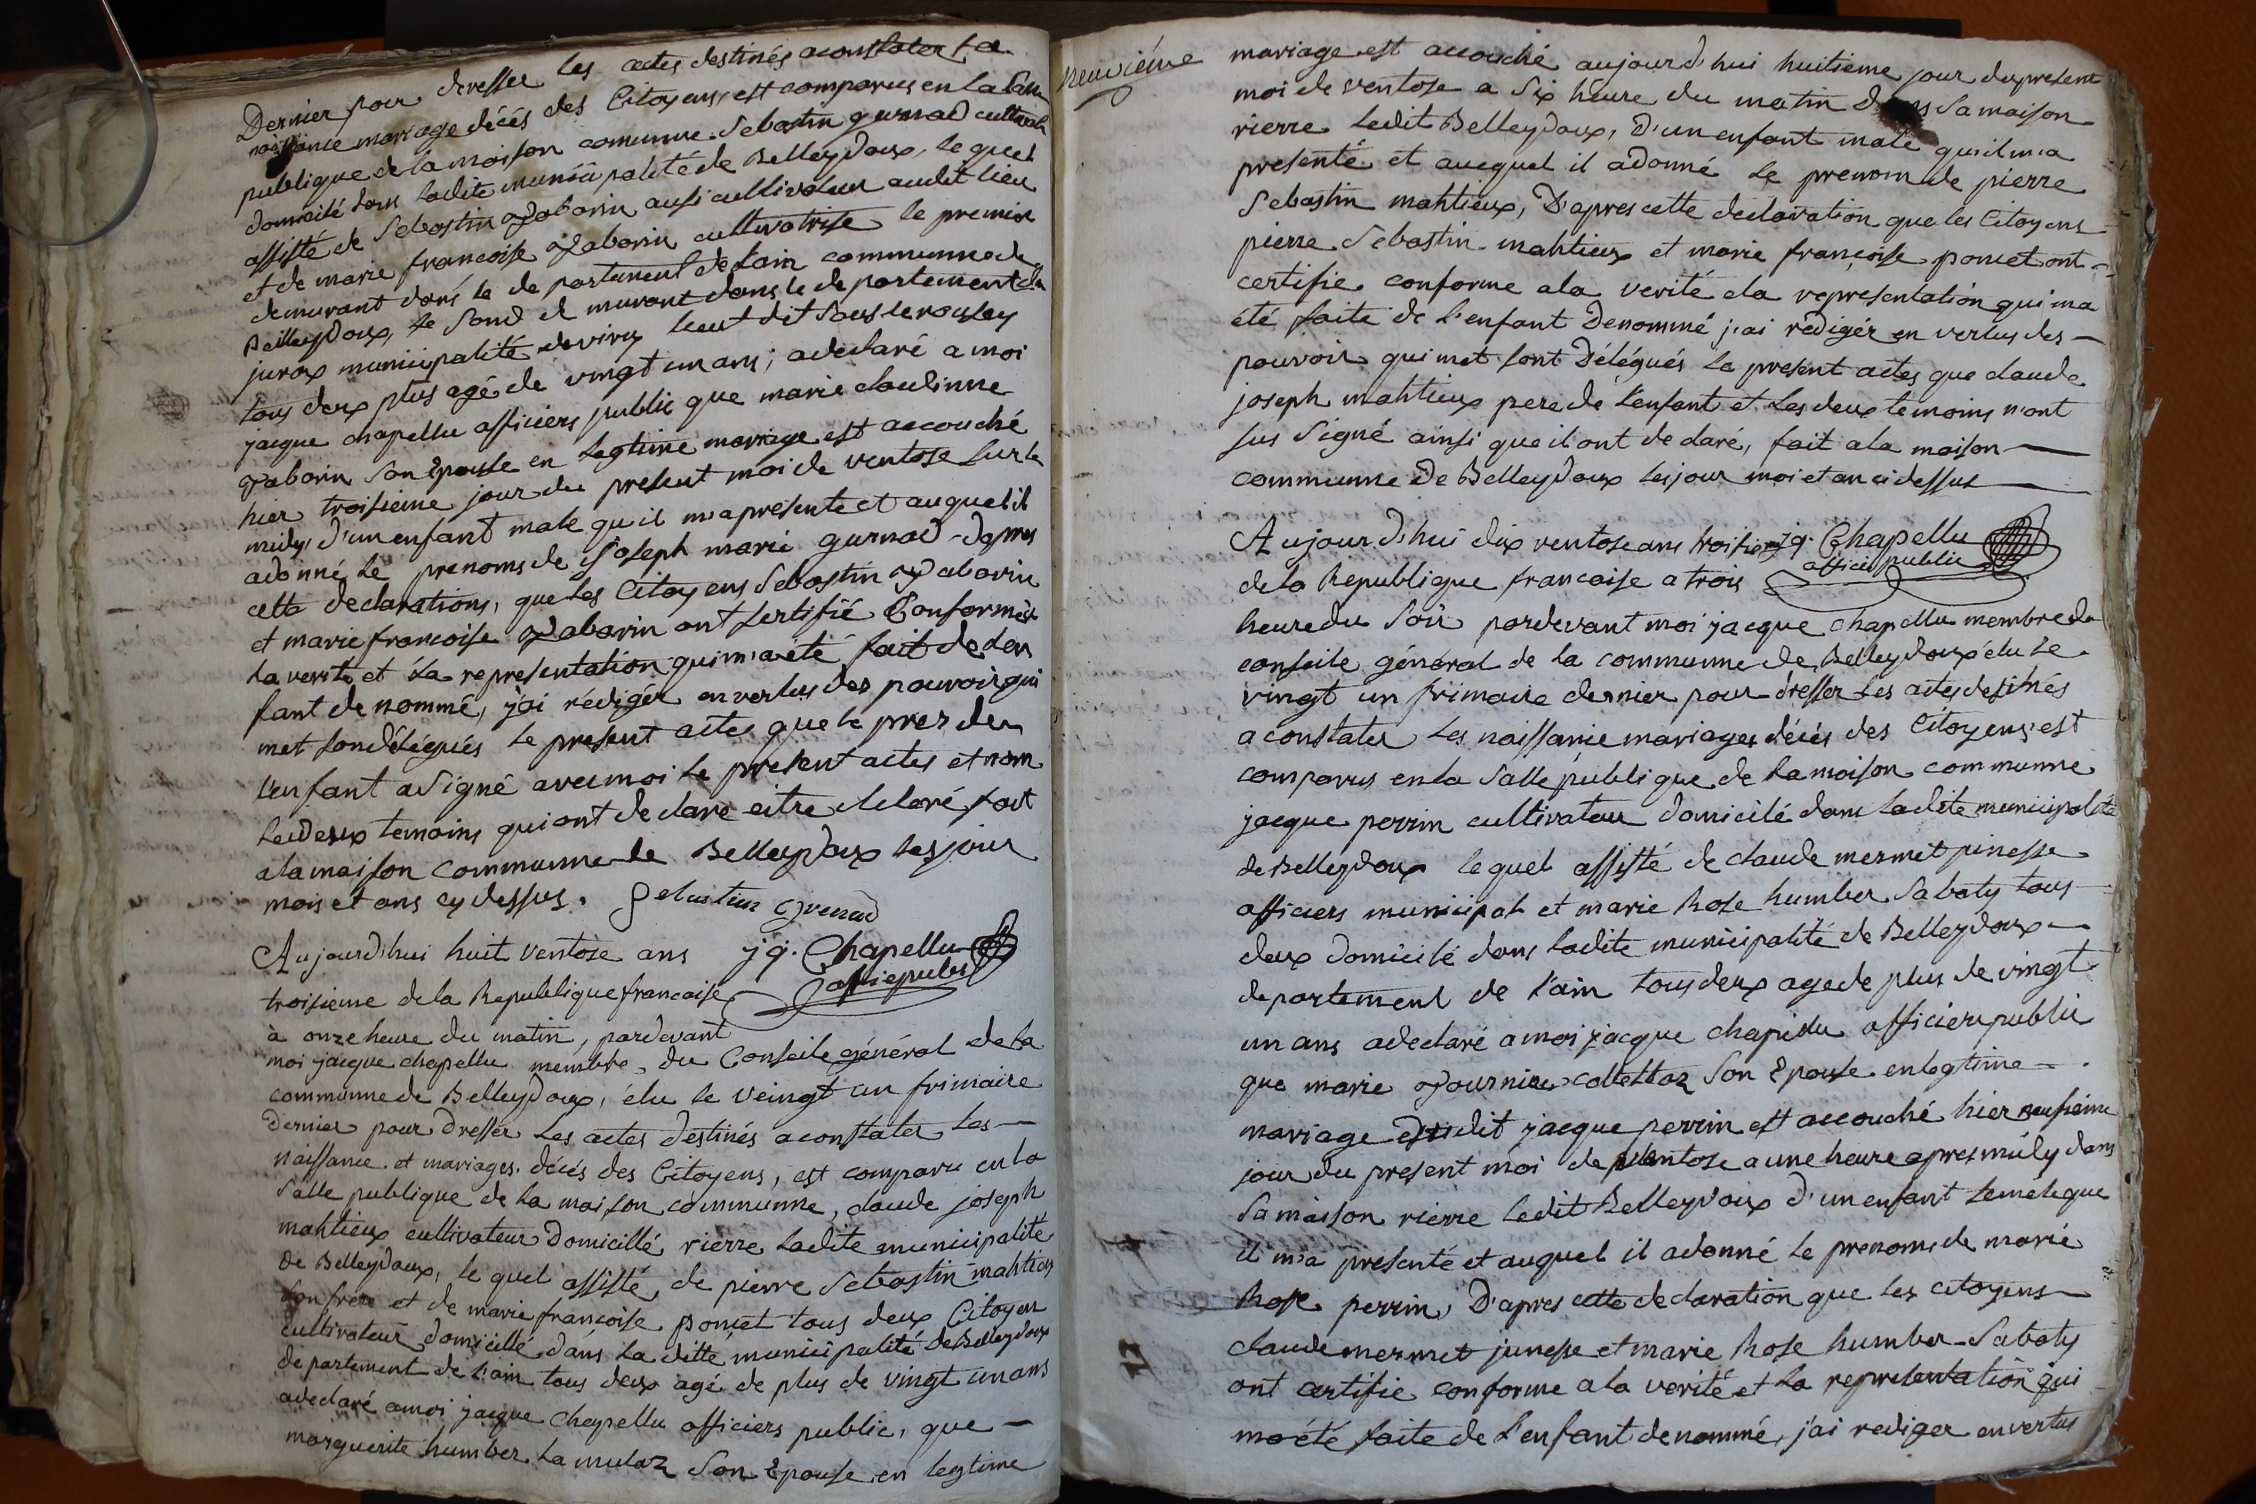 Dernier pour dresser les actes destinés a constater la
naissance mariage décés des Citoyens, est comparus en la Salle
publique de la maison comunne Sebastin gurnad cultivateur
domicilé dans ladite municipalité de Belleydoux, lequel
assisté de Sebastin aussi cultivateur audit lieu
et de marie francoise cultivatrise le premier
demurant dans le departement de lain communne de
Belleydoux, le Sond demurant dans le departement du
jurax municipalité deviry lieut dit Sous le rosley
tous deux plus agé de vingt un ans; adeclaré a moi
jacque chapellu officiers public que marie claudinne
Son Epouse en legtime mariage est accouché
hier troisieme jour du present moi de ventose Sur le
midy, d'un enfant male qu il m'a presente et auquel il
adonné le prenoms de Joseph marie gurnad - dapres
cette declarations, que les Citoyens Sebastin
et marie francoise ont Sertifié Conforme à
la verite et la representation qui m'a eté fait de len
fant denommé, j'ai rédiger en vertus des pouvoir qui
met sondélégués le present actes que le prer de
l'enfant a Signé avec moi le present actes et nom
les deux temoins qui ont declare eitre cleleré fait
a la maison communne de Belleydoux les jour
mois et ans cy dessus. Sebastien Grenad
Aujourdhui huit ventose ans jq. Chapellu
troisieme de la Republique francaise officie publi
à onze heure du matin, pardevant
moi jacque chapellu membre du Conseile général de la
communne de Belleydoux, élu le veingt un frimaire
Dernier pour Dresser Les actes destinés a constater Les
naissance et mariages décés des Citoyens, est comparu en la
Salle publique de la maison communne, claude joseph
mahtieux cultivateur Domicillé rierre ladite municipalité
de Belleydoux, le quel assisté de pierre Sebastin mahtieux
Son frere et de marie francoise poncet tous deux Citoyen
cultivateur domicillé dans la ditte municipalité de Belleydoux
departement de l'ain tous deux agé de plus de vingt un ans
adeclaré amoi jacque chapellu officiers public, que
marguerite humber La mulaz Son Epouse en legtime
neuvième
mariage est accouché aujourd'hui huitieme jour du present
moi de ventose a Six heure du matin dans Sa maison
rierre Ledit Belleydoux, D'un enfant male qu'il m'a
presenté et aucquel il adonné le prenom de pierre
Sebastin mahtieux, D'apres cette declaration que les Citoyens
pierre Sebastin mahtieux et marie françoise poncet ont
certifie conforme ala verité ela representation qui ma
été faite de l'enfant Denommé j'ai rédigér en vertus des
pouvoir qui met sont Délégués le present actes que claude
joseph mahtieux pere de l'enfant et Les deux temoins n'ont
sus Signé ainsi que il ont declaré, fait ala maison
communne De Belleydoux les jour moi et an ci dessus
Aujourdhui dix ventose ans troisieme jq. Chapellu
de la Republique francaise a trois officie public
heure du Soir pardevant moi jacque chapellu membre du
conseile général de la communne de Belleydoux élu le
vingt un frimaire dernier pour dresser les actes destinés
a constater Les naissance mariages décés des Citoyens est
comparus en la Salle publique de la maison communne
jacque perrin cultivateur domicilé dans ladite municipalité
de Belleydoux lequel assisté de claude mermet junesse
officiers municipal et marie Rose humber Sabaty tous
deux domicilé dans ladite municipalité de Belleydoux
departement de l'ain tous deux age de plus de vingt
un ans adeclaré a moi jacque chapelu officiers public
que marie collettaz Son Epouse en legtime
mariage dudit jacque perrin est accouché hier neufieme
jour du present moi de ventose a une heure apres midy dans
Sa maison rierre ledit Belleydoux d'un enfant femele que
il m'a presenté et auquel il adonné le prenoms de marie
Rose perrin, D'apres cette declaration que les citoyens
claude mermet junesse et marie Rose humber Sabaty
ont certifie conforme a la verité et la representation qui
ma été faite de l'enfant denommé, j'ai rediger en vertus